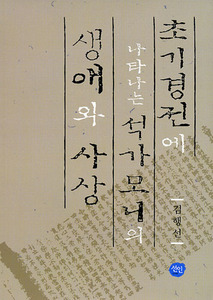 초기경전에
나타나는 석가모니의
생애와 사상
김행선
선인